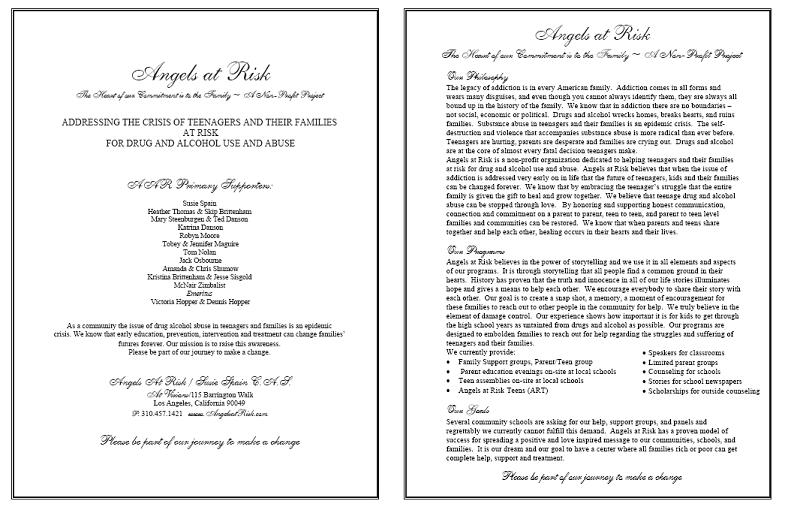 Angels at Risk
The Heart of our Commitment is to the Family ~ A Non-Profit Project
ADDRESSING THE CRISIS OF TEENAGERS AND THEIR FAMILIES
AT RISK
FOR DRUG AND ALCOHOL USE AND ABUSE
AAR Primary Supporters:
Susie Spain
Heather Thomas & Skip Brittenham
Mary Steenburgen & Ted Danson
Katrina Danson
Robyn Moore
Tobey & Jennifer Maguire
Tom Nolan
Jack Osbourne
Amanda & Chris Shumow
Kristina Brittenham & Jesse Sisgold
McNair Zimbalist
Emeritus
Victoria Hopper & Dennis Hopper
As a community the issue of drug alcohol abuse in teenagers and families is an epidemic
crisis. We know that early education, prevention, intervention and treatment can change families'
futures forever. Our mission is to raise this awareness.
Please be part of our journey to make a change.
Angels At Risk / Susie Spain C.A.S.
At Vivians/115 Barrington Walk
Los Angeles, California 90049
P: 310.457.1421 www.AngelsatRisk.com
Please be part of our journey to make a change
Angels at Risk
The Heart of our Commitment is to the Family ~ A Non-Profit Project
Our Philosophy
The legacy of addiction is in every American family. Addiction comes in all forms and
wears many disguises, and even though you cannot always identify them, they are always all
bound up in the history of the family. We know that in addiction there are no boundaries –
not social, economic or political. Drugs and alcohol wrecks homes, breaks hearts, and ruins
families. Substance abuse in teenagers and their families is an epidemic crisis. The self-
destruction and violence that accompanies substance abuse is more radical than ever before.
Teenagers are hurting, parents are desperate and families are crying out. Drugs and alcohol
are at the core of almost every fatal decision teenagers make.
Angels at Risk is a non-profit organization dedicated to helping teenagers and their families
at risk for drug and alcohol use and abuse. Angels at Risk believes that when the issue of
addiction is addressed very early on in life that the future of teenagers, kids and their families
can be changed forever. We know that by embracing the teenager's struggle that the entire
family is given the gift to heal and grow together. We believe that teenage drug and alcohol
abuse can be stopped through love. By honoring and supporting honest communication,
connection and commitment on a parent to parent, teen to teen, and parent to teen level
families and communities can be restored. We know that when parents and teens come
together and help each other, healing occurs in their hearts and their lives.
Our Programs
Angels at Risk believes in the power of storytelling and we use it in all elements and aspects
of our programs. It is through storytelling that all people find a common ground in their
hearts. History has proven that the truth and innocence in all of our life stories illuminates
hope and gives a means to help each other. We encourage everybody to share their story with
each other. Our goal is to create a snap shot, a memory, a moment of encouragement for
these families to reach out to other people in the community for help. We truly believe in the
element of damage control. Our experience shows how important it is for kids to get through
the high school years as untainted from drugs and alcohol as possible. Our programs are
designed to embolden families to reach out for help regarding the struggles and suffering of
teenagers and their families.
We currently provide:
• Family Support groups, Parent/Teen group
• Parent education evenings on-site at local schools
• Teen assemblies on-site at local schools
• Angels at Risk Teens (ART)
• Speakers for classrooms
• Limited parent groups
• Counseling for schools
• Stories for school newspapers
• Scholarships for outside counseling
Our Goals
Several community schools are asking for our help, support groups, and panels and
regrettably we currently cannot fulfill this demand. Angels at Risk has a proven model of
success for spreading a positive and love inspired message to our communities, schools, and
families. It is our dream and our goal to have a center where all families rich or poor can get
complete help, support and treatment.
Please be part of our journey to make a change